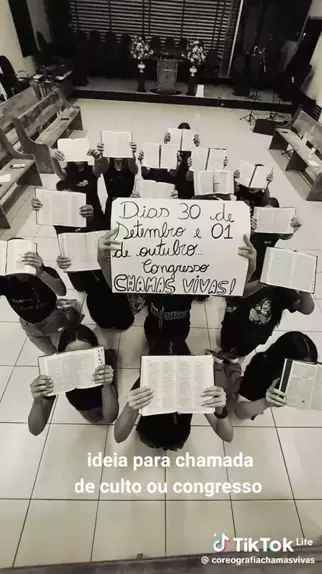 Dias 30 de
Setembro e 01
de outubro...
Congresso
CHAMAS VIVAS!
ideia para chamada
de culto ou congresso
TikTok Lite
@coreografiachamasvivas